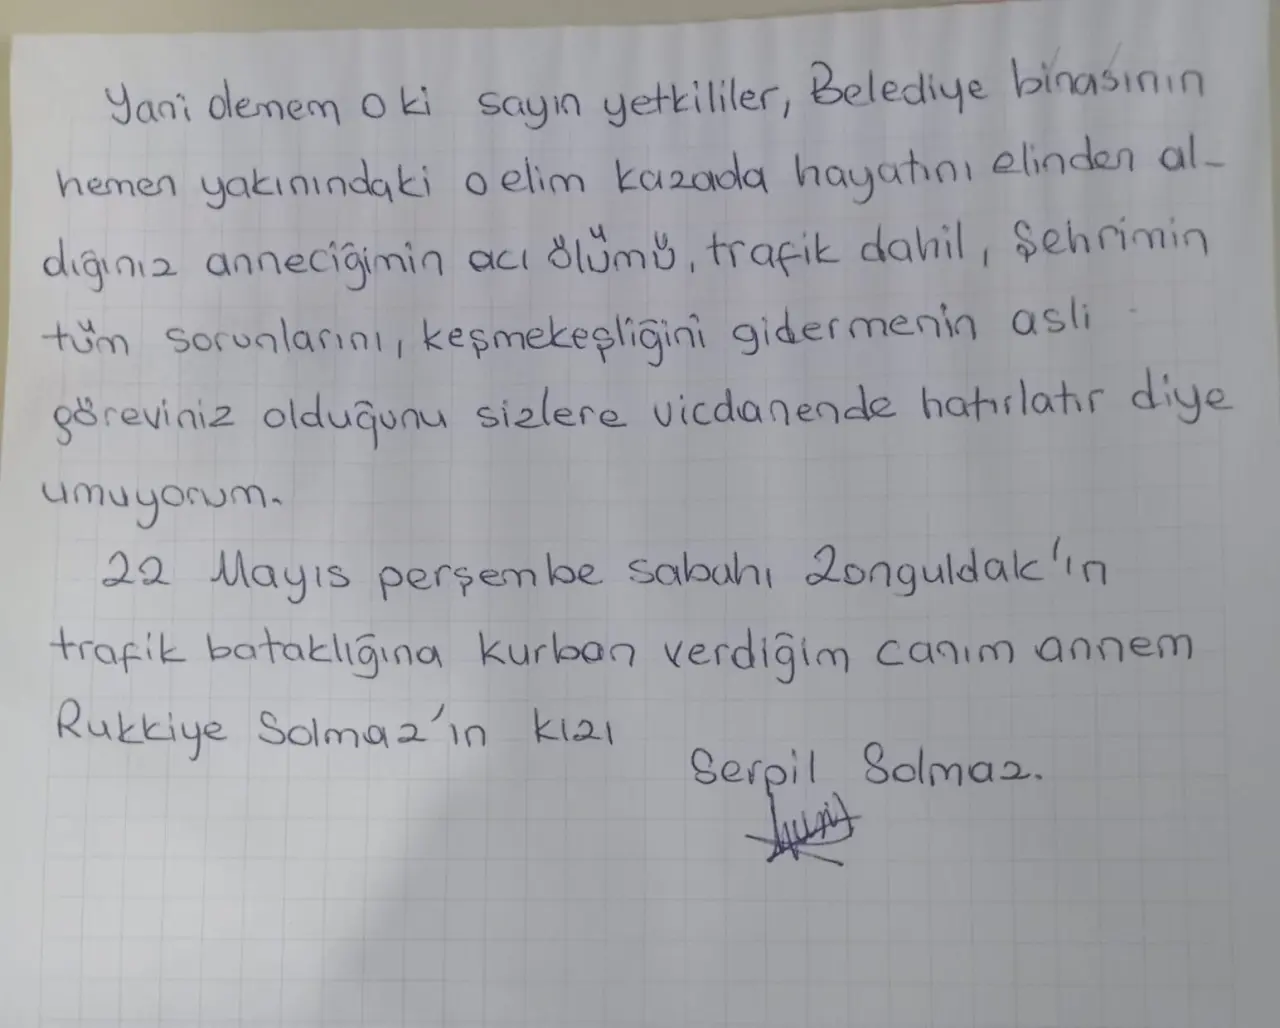 Yani demem o ki sayın yetkililer, Belediye binasının
hemen yakınındaki o elim kazada hayatını elinden al-
dığınız anneciğimin acı ölümü, trafik dahil, Şehrimin
tüm sorunlarını, keşmekeşliğini gidermenin asli
göreviniz olduğunu sizlere vicdanende hatırlatır diye
umuyorum.
22 Mayıs perşembe sabahı Zonguldak'ın
trafik bataklığına kurban verdiğim canım annem
Rukkiye Solmaz'ın kızı
Serpil Solmaz.